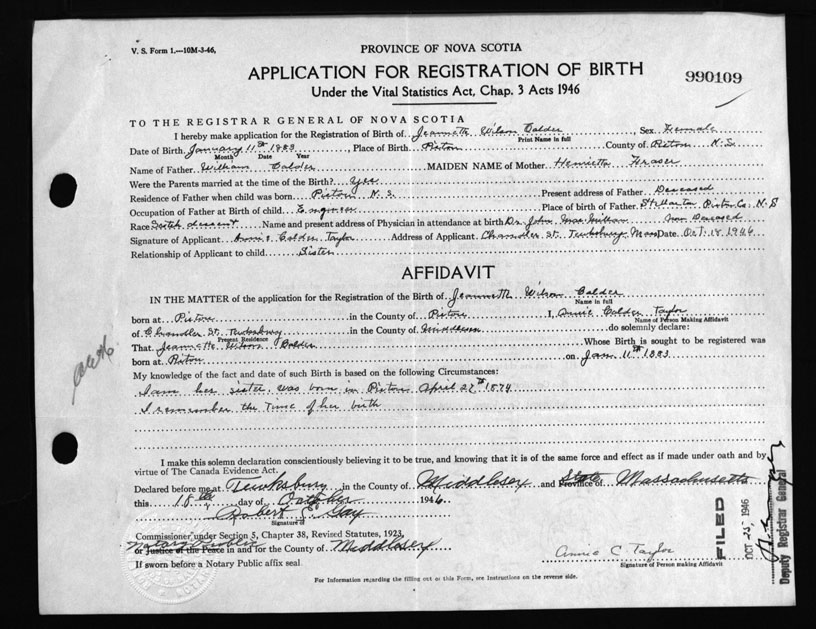 V. S. Form 1.—10M-3-46,
PROVINCE OF NOVA SCOTIA
APPLICATION FOR REGISTRATION OF BIRTH
990109
Under the Vital Statistics Act, Chap. 3 Acts 1946
TO THE REGISTRAR GENERAL OF NOVA SCOTIA
I hereby make application for the Registration of Birth of Jeannette Wilson Calder, Sex Female
Print Name in full
Date of Birth January 11th 1883, Place of Birth Pictou County of Pictou N.S.
Month Date Year
Name of Father William Calder MAIDEN NAME of Mother Henrietta Fraser
Were the Parents married at the time of the Birth? Yes
Residence of Father when child was born Pictou N.S. Present address of Father Deceased
Occupation of Father at Birth of child Engineer Place of birth of Father Stellarton Pictou Co. N.S
Race Scotch descent Name and present address of Physician in attendance at birth Dr. John MacMillan now Deceased
Signature of Applicant Annie Calder Taylor Address of Applicant Chandler St. Tewksbury Mass Date Oct. 18 1946
Relationship of Applicant to child Sister
AFFIDAVIT
IN THE MATTER of the application for the Registration of the Birth of Jeannette Wilson Calder
Name in full
born at Pictou in the County of Pictou I, Annie Calder Taylor
Name of Person Making Affidavit
of Chandler St. Tewksbury in the County of Middlesex do solemnly declare:
Present Residence
That Jeannette Wilson Calder Whose Birth is sought to be registered was
born at Pictou on Jan. 11th 1883
My knowledge of the fact and date of such Birth is based on the following Circumstances:
I am her sister was born in Pictou April 27th 1874
I remember the time of her birth
I make this solemn declaration conscientiously believing it to be true, and knowing that it is of the same force and effect as if made under oath and by
virtue of The Canada Evidence Act.
Declared before me at Tewksbury in the County of Middlesex and State Province of Massachusetts
this 18th day of October 1946
Robert E. Gay
Signature of
Commissioner under Section 5, Chapter 38, Revised Statutes, 1923,
Notary Public
or Justice of the Peace in and for the County of Middlesex
If sworn before a Notary Public affix seal
Annie C Taylor
Signature of Person making Affidavit
For Information regarding the filling out of this Form, see Instructions on the reverse side.
FILED
OCT 25 1946
Deputy Registrar General